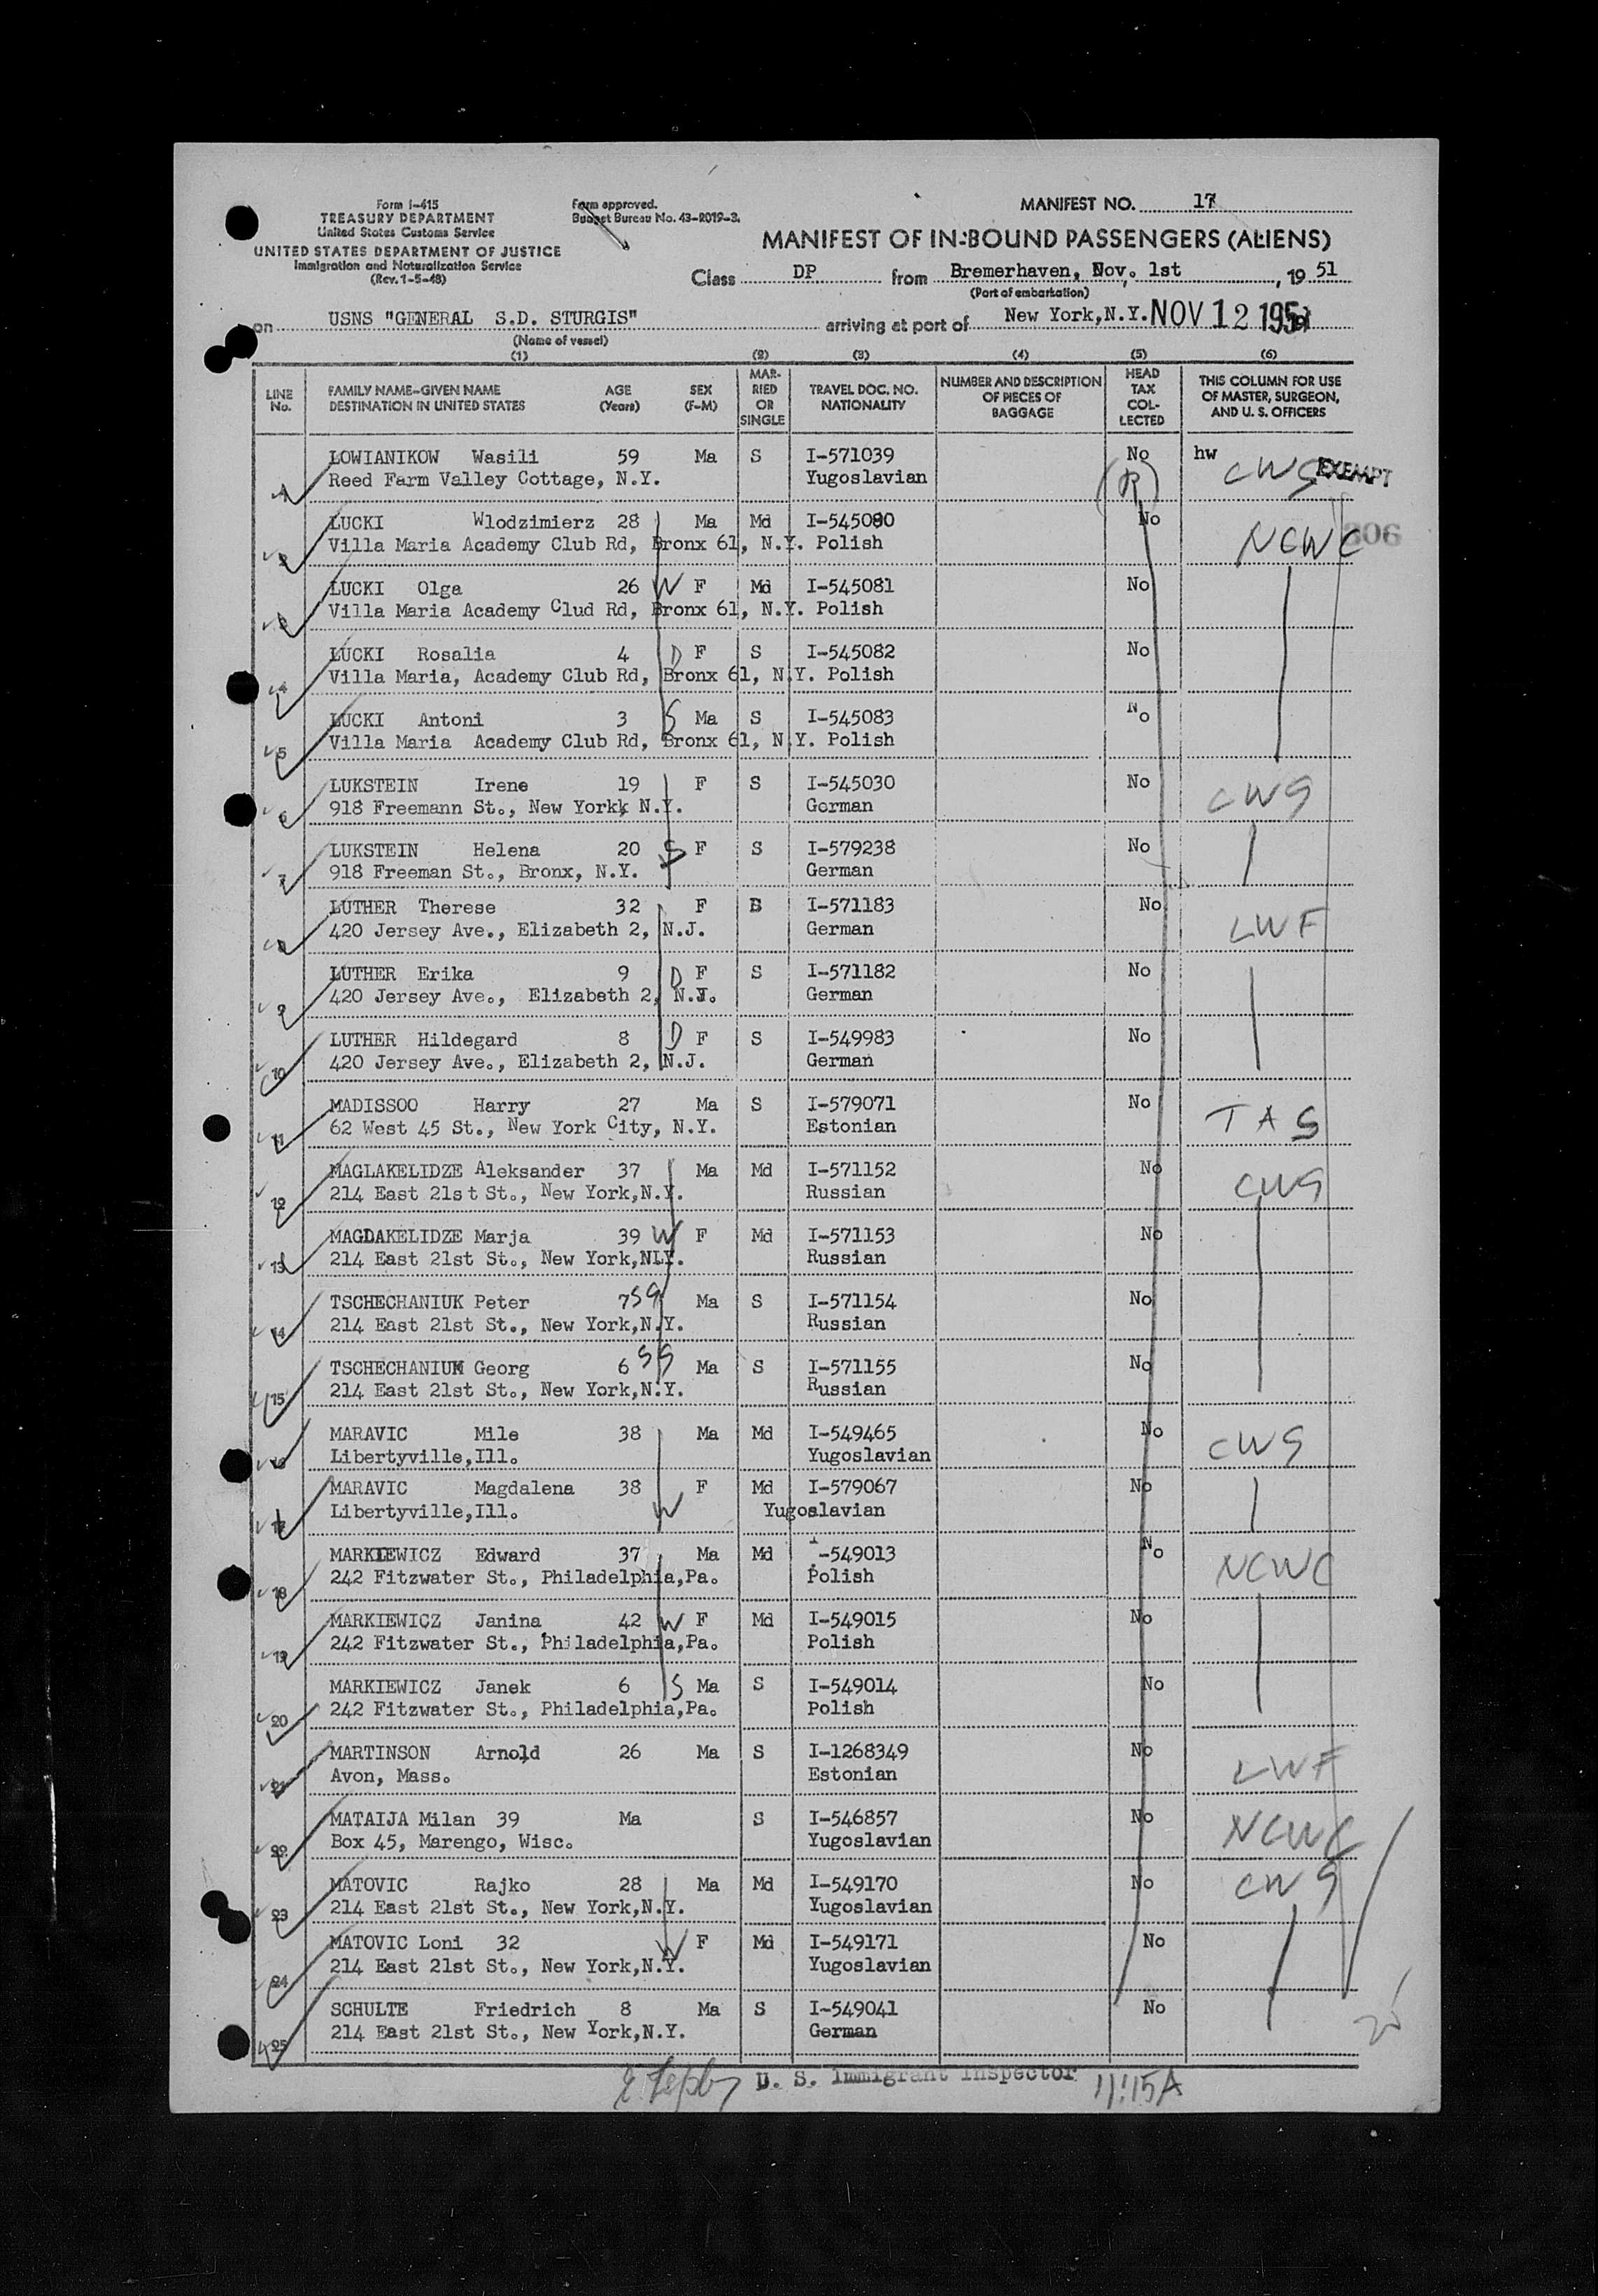 Form I-415
TREASURY DEPARTMENT
United States Customs Service
UNITED STATES DEPARTMENT OF JUSTICE
Immigration and Naturalization Service
(Rev. 1-5-48)
Form approved.
Budget Bureau No. 43-R019-3.
MANIFEST NO. 17
MANIFEST OF IN-BOUND PASSENGERS (ALIENS)
Class DP from Bremerhaven, Nov. 1st, 19 51
(Port of embarkation)
on USNS "GENERAL S.D. STURGIS" arriving at port of New York, N.Y. NOV 12 1951
(Name of vessel)
(1) (2) (3) (4) (5) (6)
LINE No. FAMILY NAME-GIVEN NAME DESTINATION IN UNITED STATES AGE (Years) SEX (F-M) MAR-RIED OR SINGLE TRAVEL DOC. NO. NATIONALITY NUMBER AND DESCRIPTION OF PIECES OF BAGGAGE HEAD TAX COL-LECTED THIS COLUMN FOR USE OF MASTER, SURGEON, AND U. S. OFFICERS
1 LOWIANIKOW Wasili 59 Ma S I-571039 No hw CWS EXEMPT
Reed Farm Valley Cottage, N.Y. Yugoslavian (R)
2 LUCKI Wlodzimierz 28 Ma Md I-545080 No NCWC 306
Villa Maria Academy Club Rd, Bronx 61, N.Y. Polish
3 LUCKI Olga 26 W F Md I-545081 No
Villa Maria Academy Clud Rd, Bronx 61, N.Y. Polish
4 LUCKI Rosalia 4 D F S I-545082 No
Villa Maria, Academy Club Rd, Bronx 61, N.Y. Polish
5 LUCKI Antoni 3 S Ma S I-545083 No
Villa Maria Academy Club Rd, Bronx 61, N.Y. Polish
6 LUKSTEIN Irene 19 F S I-545030 No CWS
918 Freemann St., New Yorkk N.Y. German
7 LUKSTEIN Helena 20 S F S I-579238 No
918 Freeman St., Bronx, N.Y. German
8 LUTHER Therese 32 F I-571183 No LWF
420 Jersey Ave., Elizabeth 2, N.J. German
9 LUTHER Erika 9 D F S I-571182 No
420 Jersey Ave., Elizabeth 2, N.J. German
10 LUTHER Hildegard 8 D F S I-549983 No
420 Jersey Ave., Elizabeth 2, N.J. German
11 MADISSOO Harry 27 Ma S I-579071 No TAS
62 West 45 St., New York City, N.Y. Estonian
12 MAGLAKELIDZE Aleksander 37 Ma Md I-571152 No CWS
214 East 21st St., New York,N.Y. Russian
13 MAGDAKELIDZE Marja 39 W F Md I-571153 No
214 East 21st St., New York,NLY. Russian
14 TSCHECHANIUK Peter 7 SS Ma S I-571154 No
214 East 21st St., New York,N.Y. Russian
15 TSCHECHANIUK Georg 6 SS Ma S I-571155 No
214 East 21st St., New York,N.Y. Russian
16 MARAVIC Mile 38 Ma Md I-549465 No CWS
Libertyville,Ill. Yugoslavian
17 MARAVIC Magdalena 38 W F Md I-579067 No
Libertyville,Ill. Yugoslavian
18 MARKIEWICZ Edward 37 Ma Md I-549013 No NCWC
242 Fitzwater St., Philadelphia,Pa. Polish
19 MARKIEWICZ Janina 42 W F Md I-549015 No
242 Fitzwater St., Philadelphia,Pa. Polish
20 MARKIEWICZ Janek 6 S Ma S I-549014 No
242 Fitzwater St., Philadelphia,Pa. Polish
21 MARTINSON Arnold 26 Ma S I-1268349 No LWF
Avon, Mass. Estonian
22 MATAIJA Milan 39 Ma S I-546857 No NCWC
Box 45, Marengo, Wisc. Yugoslavian
23 MATOVIC Rajko 28 Ma Md I-549170 No CWS
214 East 21st St., New York,N.Y. Yugoslavian
24 MATOVIC Loni 32 W F Md I-549171 No
214 East 21st St., New York,N.Y. Yugoslavian
25 SCHULTE Friedrich 8 Ma S I-549041 No
214 East 21st St., New York,N.Y. German
U. S. Immigrant Inspector 11:15A